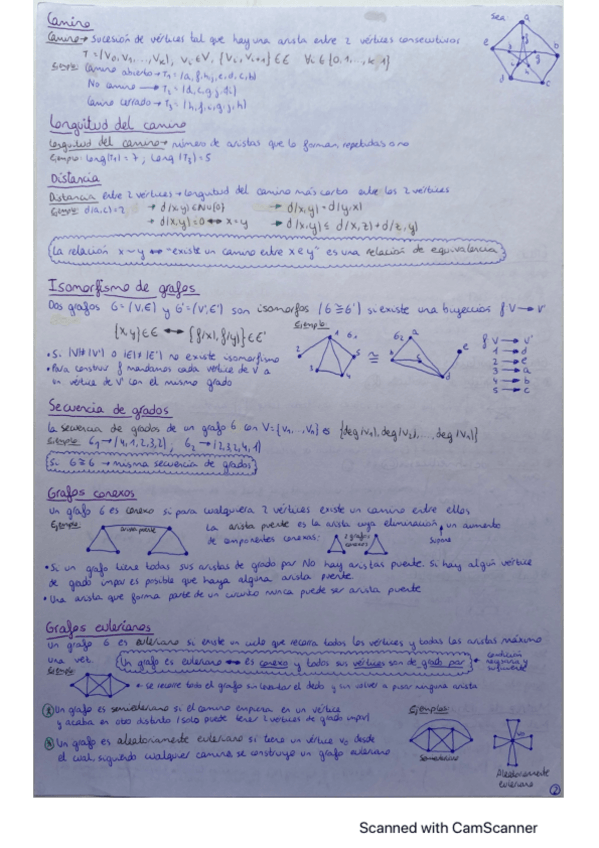 Camino
Camino → sucesión de vértices tal que hay una arista entre 2 vértices consecutivos
Sea
T = (V0, V1, ..., Vk), Vi ∈ V, {Vi, Vi+1} ∈ E
Ejemplo: Camino abierto → T1 = (a, f, h, j, e, d, c, b)
No camino → T2 =
Camino cerrado → T3 = (h, f, i, g, j, h)
Longitud del camino
Longitud del camino → número de aristas que lo forman, repetidas o no
Ejemplo: Long(T1) = 7; Long(T3) = 5
Distancia
Distancia entre 2 vértices → longitud del camino más corto entre los 2 vértices
Ejemplo: d(a,c) = 2 → d(x,y) ∈ N∪{0} → d(x,y) = d(y,x)
→ d(x,y) = 0 ↔ x = y → d(x,y) ≤ d(x,z) + d(z,y)
La relación x ~ y ↔ "existe un camino entre x e y" es una relación de equivalencia
Isomorfismo de grafos
Dos grafos G = (V,E) y G' = (V',E') son isomorfos (G ≅ G') si existe una biyección f V → V'
{x,y} ∈ E ↔ {f(x), f(y)} ∈ E'
Ejemplo:
• Si |V| ≠ |V'| o |E| ≠ |E'| no existe isomorfismo
• Para construir f mandamos cada vértice de V a
un vértice de V' con el mismo grado
f V → V'
1 → d
2 → e
3 → a
4 → b
5 → c
Secuencia de grados
La secuencia de grados de un grafo G con V = {V1, ..., Vn} es {deg(V1), deg(V2), ..., deg(Vn)}
Ejemplo: G1 → (4, 1, 2, 3, 2); G2 → (2, 3, 2, 4, 1)
Si G ≅ G → misma secuencia de grados
Grafos conexos
Un grafo G es conexo si para cualquiera 2 vértices existe un camino entre ellos
Ejemplo: arista puente
La arista puente es la arista cuya eliminación supone un aumento
de componentes conexas: 2 grafos conexos
• Si un grafo tiene todas sus aristas de grado par No hay aristas puente. Si hay algún vértice
de grado impar es posible que haya alguna arista puente.
• Una arista que forma parte de un circuito nunca puede ser arista puente
Grafos eulerianos
Un grafo G es euleriano si existe un ciclo que recorra todos los vértices y todas las aristas máximo
una vez. Un grafo es euleriano ↔ es conexo y todos sus vértices son de grado par ← condición necesaria y suficiente
Ejemplo:
← se recorre todo el grafo sin levantar el dedo y sin volver a pasar ninguna arista
Un grafo es semieuleriano si el camino empieza en un vértice
y acaba en otro distinto (solo puede tener 2 vértices de grado impar)
Un grafo es aleatoriamente euleriano si tiene un vértice v0 desde
el cual, siguiendo cualquier camino, se construye un grafo euleriano
Ejemplos:
Semieuleriano
Aleatoriamente
euleriano
2
Scanned with CamScanner